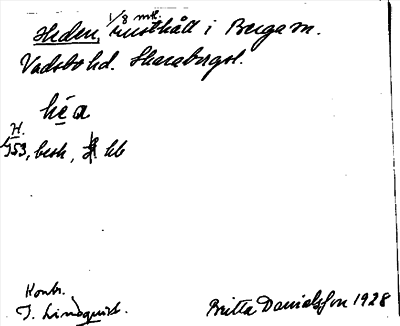 Heden, 1/8 mtl. rusthåll i Berga sn.
Vadsbo hd. Skarabergsl.
hé̱a
H.
153, besk, kb
Kontr.
I. Lindquist.
Britta Danielsson 1928